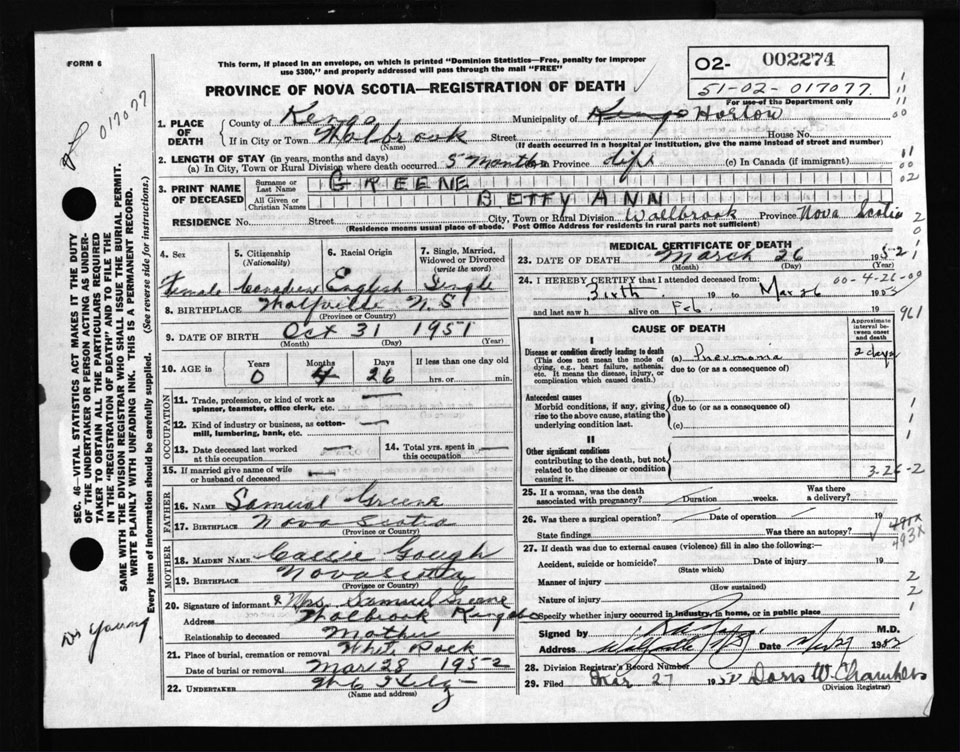 FORM 6
This form, if placed in an envelope, on which is printed "Dominion Statistics—Free, penalty for improper
use $300," and properly addressed will pass through the mail "FREE"
PROVINCE OF NOVA SCOTIA—REGISTRATION OF DEATH
02- 002274
51-02-017077.
For use of the Department only
017077
1. PLACE OF DEATH
County of Kings Municipality of Kings Horton
If in City or Town Walbrook Street House No.
(Name) (If death occurred in a hospital or institution, give the name instead of street and number)
2. LENGTH OF STAY (in years, months and days)
(a) In City, Town or Rural Division where death occurred 5 Months Province life (c) In Canada (if immigrant)
3. PRINT NAME OF DECEASED
Surname or Last Name GREENE
All Given or Christian Names BETTY ANN
RESIDENCE No. Street City, Town or Rural Division Wallbrook Province Nova Scotia
(Residence means usual place of abode. Post Office Address for residents in rural parts not sufficient)
4. Sex Female
5. Citizenship (Nationality) Canadian
6. Racial Origin English
7. Single, Married, Widowed or Divorced (write the word) Single
8. BIRTHPLACE Wolfville N.S.
(Province or Country)
9. DATE OF BIRTH Oct 31 1951
(Month) (Day) (Year)
10. AGE in Years 0 Months 4 Days 26 If less than one day old hrs. or min.
OCCUPATION
11. Trade, profession, or kind of work as spinner, teamster, office clerk, etc. —
12. Kind of industry or business, as cotton-mill, lumbering, bank, etc. —
13. Date deceased last worked at this occupation —
14. Total yrs. spent in this occupation —
15. If married give name of wife or husband of deceased —
FATHER
16. NAME Samuel Greene
17. BIRTHPLACE Nova Scotia
(Province or Country)
MOTHER
18. MAIDEN NAME Callie Gough
19. BIRTHPLACE Nova Scotia
(Province or Country)
20. Signature of informant Mrs Samuel Greene
Address Walbrook Kings Co
Relationship to deceased Mother
21. Place of burial, cremation or removal White Rock
Date of burial or removal Mar 28 1952
22. UNDERTAKER
(Name and address)
MEDICAL CERTIFICATE OF DEATH
23. DATE OF DEATH March 26 1952
(Month) (Day) (Year)
24. I HEREBY CERTIFY that I attended deceased from:
Birth 19 to Mar 26 195
and last saw h alive on Feb. 19
00-4-26-09
961
CAUSE OF DEATH
Approximate interval between onset and death
I
Disease or condition directly leading to death (a) Pneumonia 2 days
(This does not mean the mode of dying, e.g., heart failure, asthenia, etc. It means the disease, injury, or complication which caused death.)
due to (or as a consequence of)
Antecedent causes (b)
Morbid conditions, if any, giving rise to the above cause, stating the underlying condition last.
due to (or as a consequence of)
(c)
II
Other significant conditions
contributing to the death, but not related to the disease or condition causing it.
3-26-2
25. If a woman, was the death associated with pregnancy? Duration weeks. Was there a delivery?
26. Was there a surgical operation? Date of operation 19
State findings Was there an autopsy?
493X
27. If death was due to external causes (violence) fill in also the following:—
Accident, suicide or homicide? Date of injury 19
(State which)
Manner of injury
(How sustained)
Nature of injury
Specify whether injury occurred in industry, in home, or in public place
Signed by M.D.
Address Wolfville NS Date 27 1952
28. Division Registrar's Record Number
29. Filed Mar 27 1952 Doris W. Chambers
(Division Registrar)
SEC. 46—VITAL STATISTICS ACT MAKES IT THE DUTY
OF THE UNDERTAKER OR PERSON ACTING AS UNDER-
TAKER TO OBTAIN ALL THE PARTICULARS REQUIRED
IN THE "REGISTRATION OF DEATH" AND TO FILE THE
SAME WITH THE DIVISION REGISTRAR WHO SHALL ISSUE THE BURIAL PERMIT.
WRITE PLAINLY WITH UNFADING INK. THIS IS A PERMANENT RECORD.
Every item of information should be carefully supplied. (See reverse side for instructions.)
Dr Young